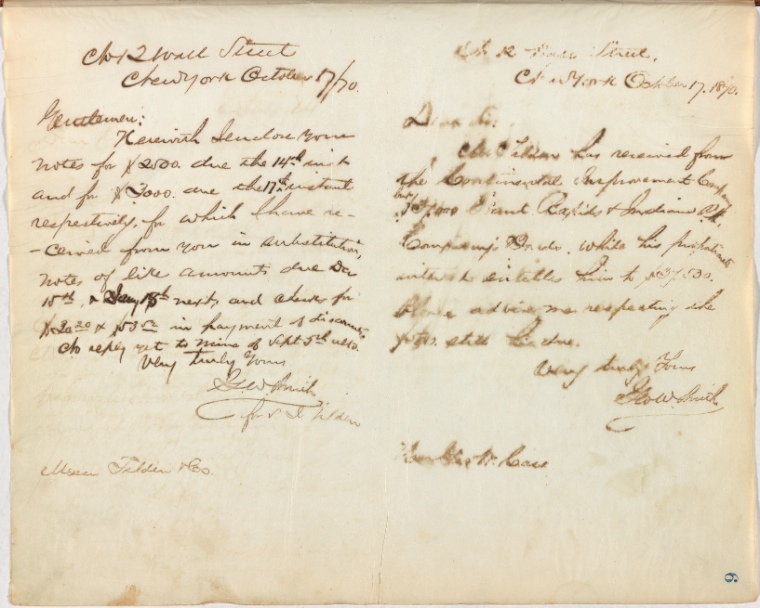 No 12 Wall Street
New York October 17/70.
Gentlemen:
Herewith I enclose your
notes for $2500. due the 14th inst
and for $3000. due the 17th instant
respectively, for which I have re-
-ceived from you in substitution,
notes of like amounts due Dec
15th, & Jany 18th next, and check for
in payment of discount.
No reply yet to mine of Sept 5th ulto.
Very truly Yours
Geo W Smith
for S J Tilden
Messrs Tilden & Co.
No 12 Wall Street,
New York October 17. 1870.
Dear Sir:
Mr Tilden has received from
the Continental Improvement Company
only Grand Rapids & Indiana RR.
Company's Bonds, while his proportionate
interest entitles him to
Please advise me respecting the
still his due.
Very truly Yours
Geo W. Smith
Hon Geo W. Cass
6